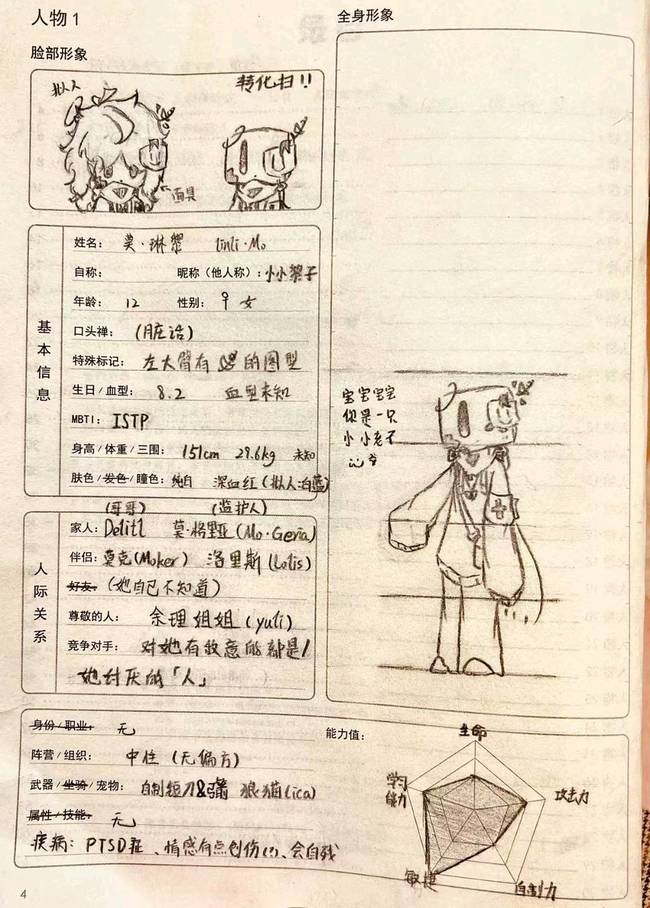 人物 1
全身形象
脸部形象
拟人
转化扫!!
面具
姓名: 莫·琳黎 Linli·Mo
自称: 昵称(他人称): 小小黎子
年龄: 12 性别: ♀ 女
口头禅: (脏话)
特殊标记: 左大臂有 的图型
生日/血型: 8.2 血型未知
MBTI: ISTP
身高/体重/三围: 151cm 29.6kg 未知
肤色/发色/瞳色: 纯白 深血红(拟人:白蓝)
基本信息
宝宝宝宝
你是一只
小小老子
(哥哥) (监护人)
家人: Delitl 莫·格野亚(Mo·Geria)
伴侣: 莫克(Moker) 洛里斯(Lolis)
好友: (她自己不知道)
尊敬的人: 余理姐姐(yuli)
竞争对手: 对她有敌意的都是/
她讨厌的「人」
人际关系
身份/职业: 无
阵营/组织: 中性(无偏方)
武器/坐骑/宠物: 自制短刀& 狼猫(ica)
属性/技能: 无
疾病: PTSD症、情感有点创伤(?)、会自残
能力值:
生命
学习能力
攻击力
敏捷
自制力
4